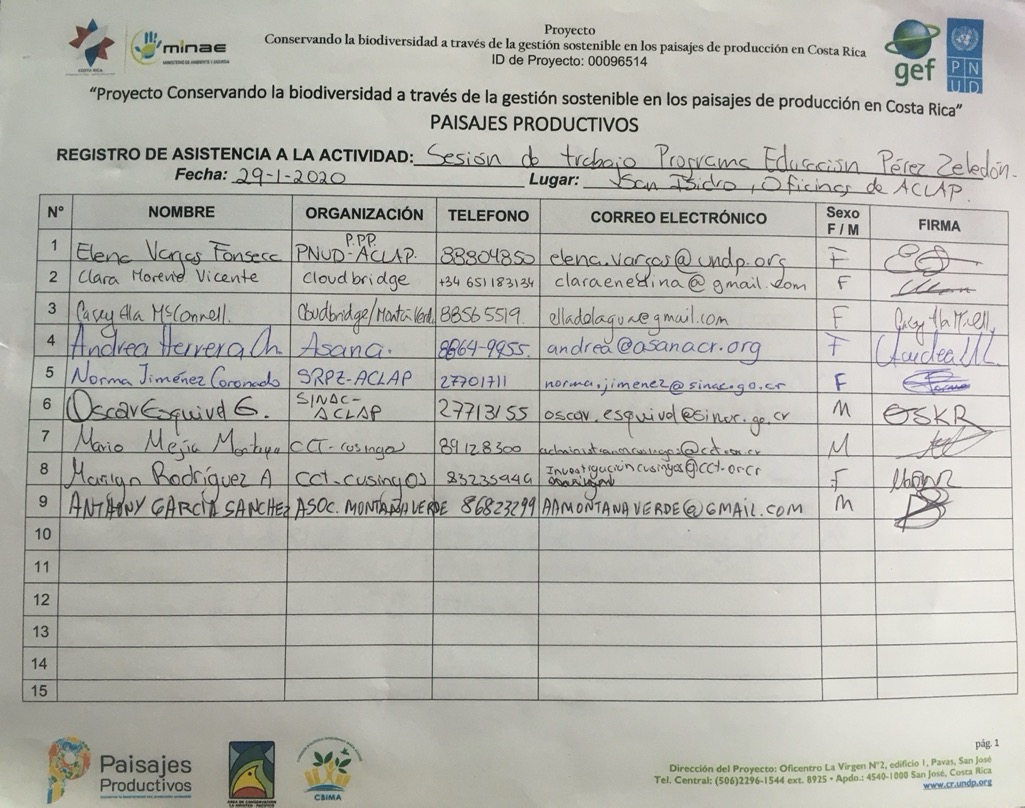 COSTA RICA
minae
MINISTERIO DE AMBIENTE Y ENERGÍA
Proyecto
Conservando la biodiversidad a través de la gestión sostenible en los paisajes de producción en Costa Rica
ID de Proyecto: 00096514
gef
PN
UD
“Proyecto Conservando la biodiversidad a través de la gestión sostenible en los paisajes de producción en Costa Rica”
PAISAJES PRODUCTIVOS
REGISTRO DE ASISTENCIA A LA ACTIVIDAD: Sesión de trabajo Programa Educación Pérez Zeledón.
Fecha: 29-1-2020 Lugar: San Isidro, Oficinas de ACLAP.
N° NOMBRE ORGANIZACIÓN TELEFONO CORREO ELECTRÓNICO Sexo F / M FIRMA
1 Elena Vargas Fonseca PNUD-ACLAP. P.PP. 88804850 elena.vargas@undp.org F
2 Clara Moreno Vicente Cloudbridge +34 651183134 claraenedina@gmail.com F
3 Casey Ella McConnell. Cloudbridge/Montaña Verd. 88565519. elladelagua@gmail.com F
4 Andrea Herrera Ch Asana. 8864-9955. andrea@asanacr.org F
5 Norma Jiménez Coronado SRPZ-ACLAP 27701711 norma.jimenez@sinac.go.cr F
6 Oscar Esquivel G. SINAC-ACLAP 27713155 oscar.esquivel@sinac.go.cr M OSKR
7 Mario Mejía Montoya CCT-cusingos 89128300 M
8 Marilyn Rodríguez A CCT-cusingos 83235944 Investigacióncusingos@cct.or.cr F
9 ANTHONY GARCÍA SANCHEZ ASOC. MONTAÑA VERDE 86823299 AAMONTANAVERDE@GMAIL.COM M
10
11
12
13
14
15
pág. 1
Paisajes
Productivos
CBIMA
Dirección del Proyecto: Oficentro La Virgen N°2, edificio 1, Pavas, San José
Tel. Central: (506)2296-1544 ext. 8925 • Apdo.: 4540-1000 San José, Costa Rica
www.cr.undp.org